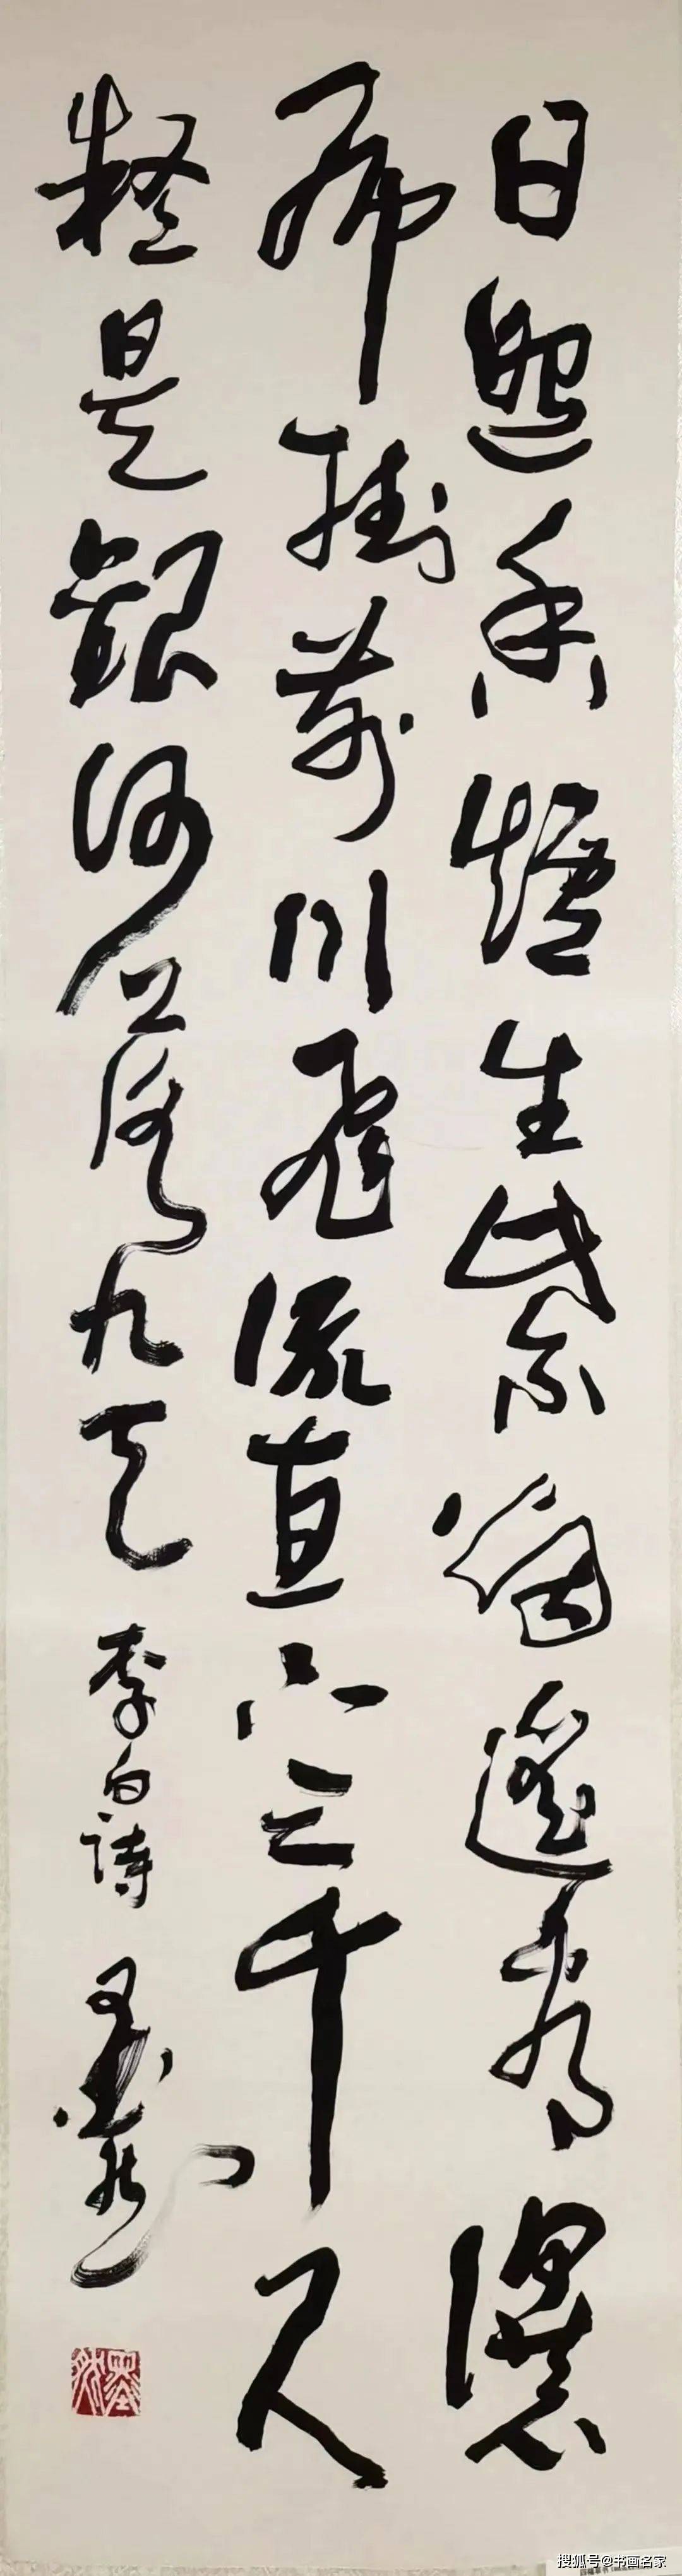 日照香爐生紫煙遙看瀑
布掛前川飛流直下三千尺
疑是銀河落九天 李白詩
搜狐号@书画名家